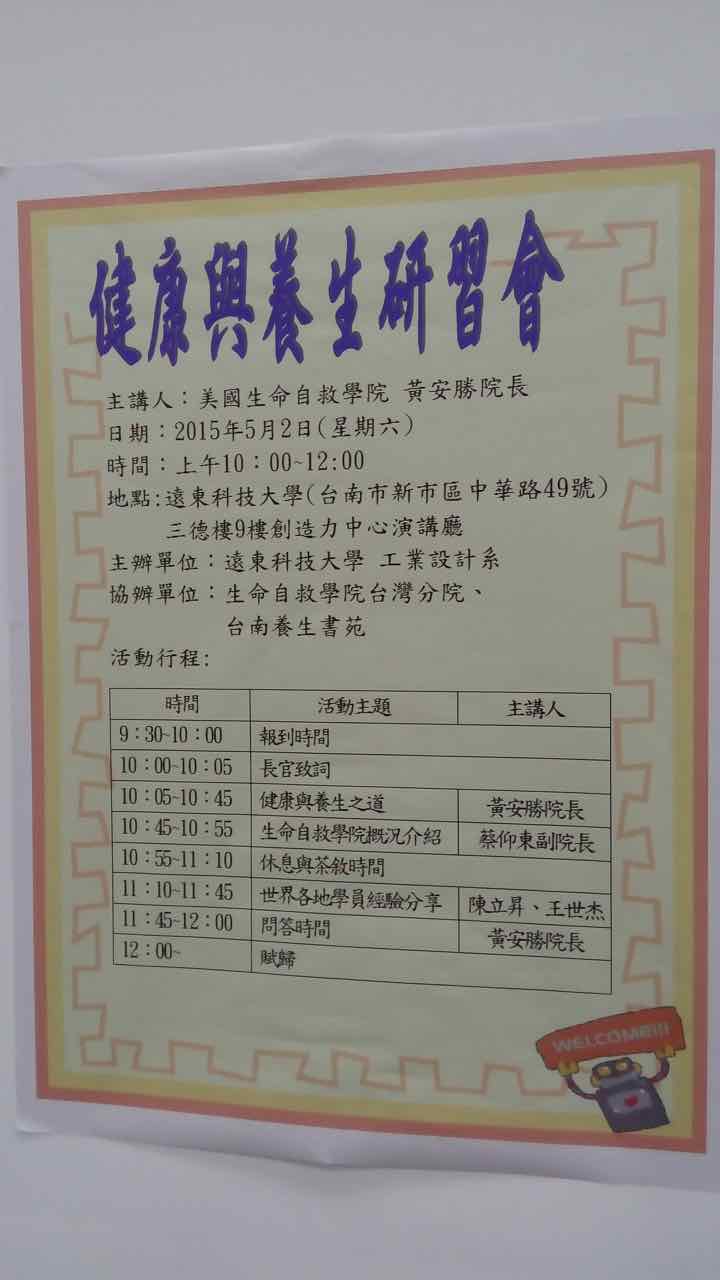 健康與養生研習會
主講人：美國生命自救學院 黃安勝院長
日期：2015年5月2日(星期六)
時間：上午10：00~12:00
地點:遠東科技大學(台南市新市區中華路49號)
三德樓9樓創造力中心演講廳
主辦單位：遠東科技大學 工業設計系
協辦單位：生命自救學院台灣分院、
台南養生書苑
活動行程:
時間 活動主題 主講人
9：30~10：00 報到時間
10：00~10：05 長官致詞
10：05~10：45 健康與養生之道 黃安勝院長
10：45~10：55 生命自救學院概況介紹 蔡仰東副院長
10：55~11：10 休息與茶敘時間
11：10~11：45 世界各地學員經驗分享 陳立昇、王世杰
11：45~12：00 問答時間 黃安勝院長
12：00~ 賦歸
WELCOME!!!